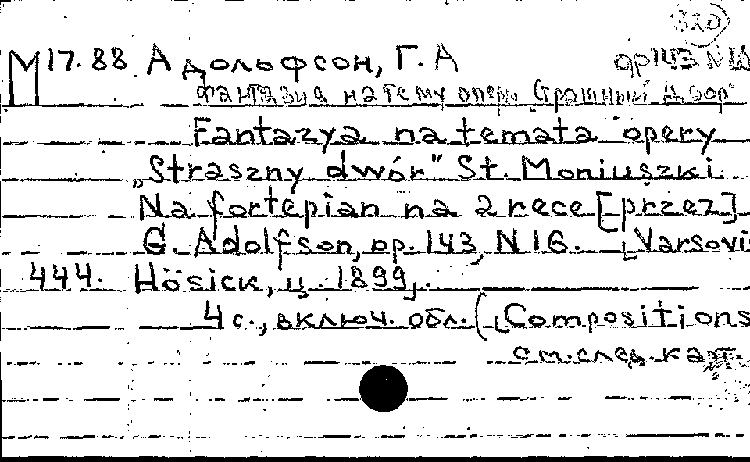 320
М 17.88 Адольфсон, Г. А ор 143 N 16
Фантазия на тему опер. Страшный двор"
Fantazya na temata opery
„Straszny dwór" St. Moniuszki
Na fortepian na 2 rece [przez]
G. Adolfson, op. 143, N 16. [Varsovi
444. Hösick, ц. 1899].
4 с., включ. обл. ([Compositions
см. след. карт.